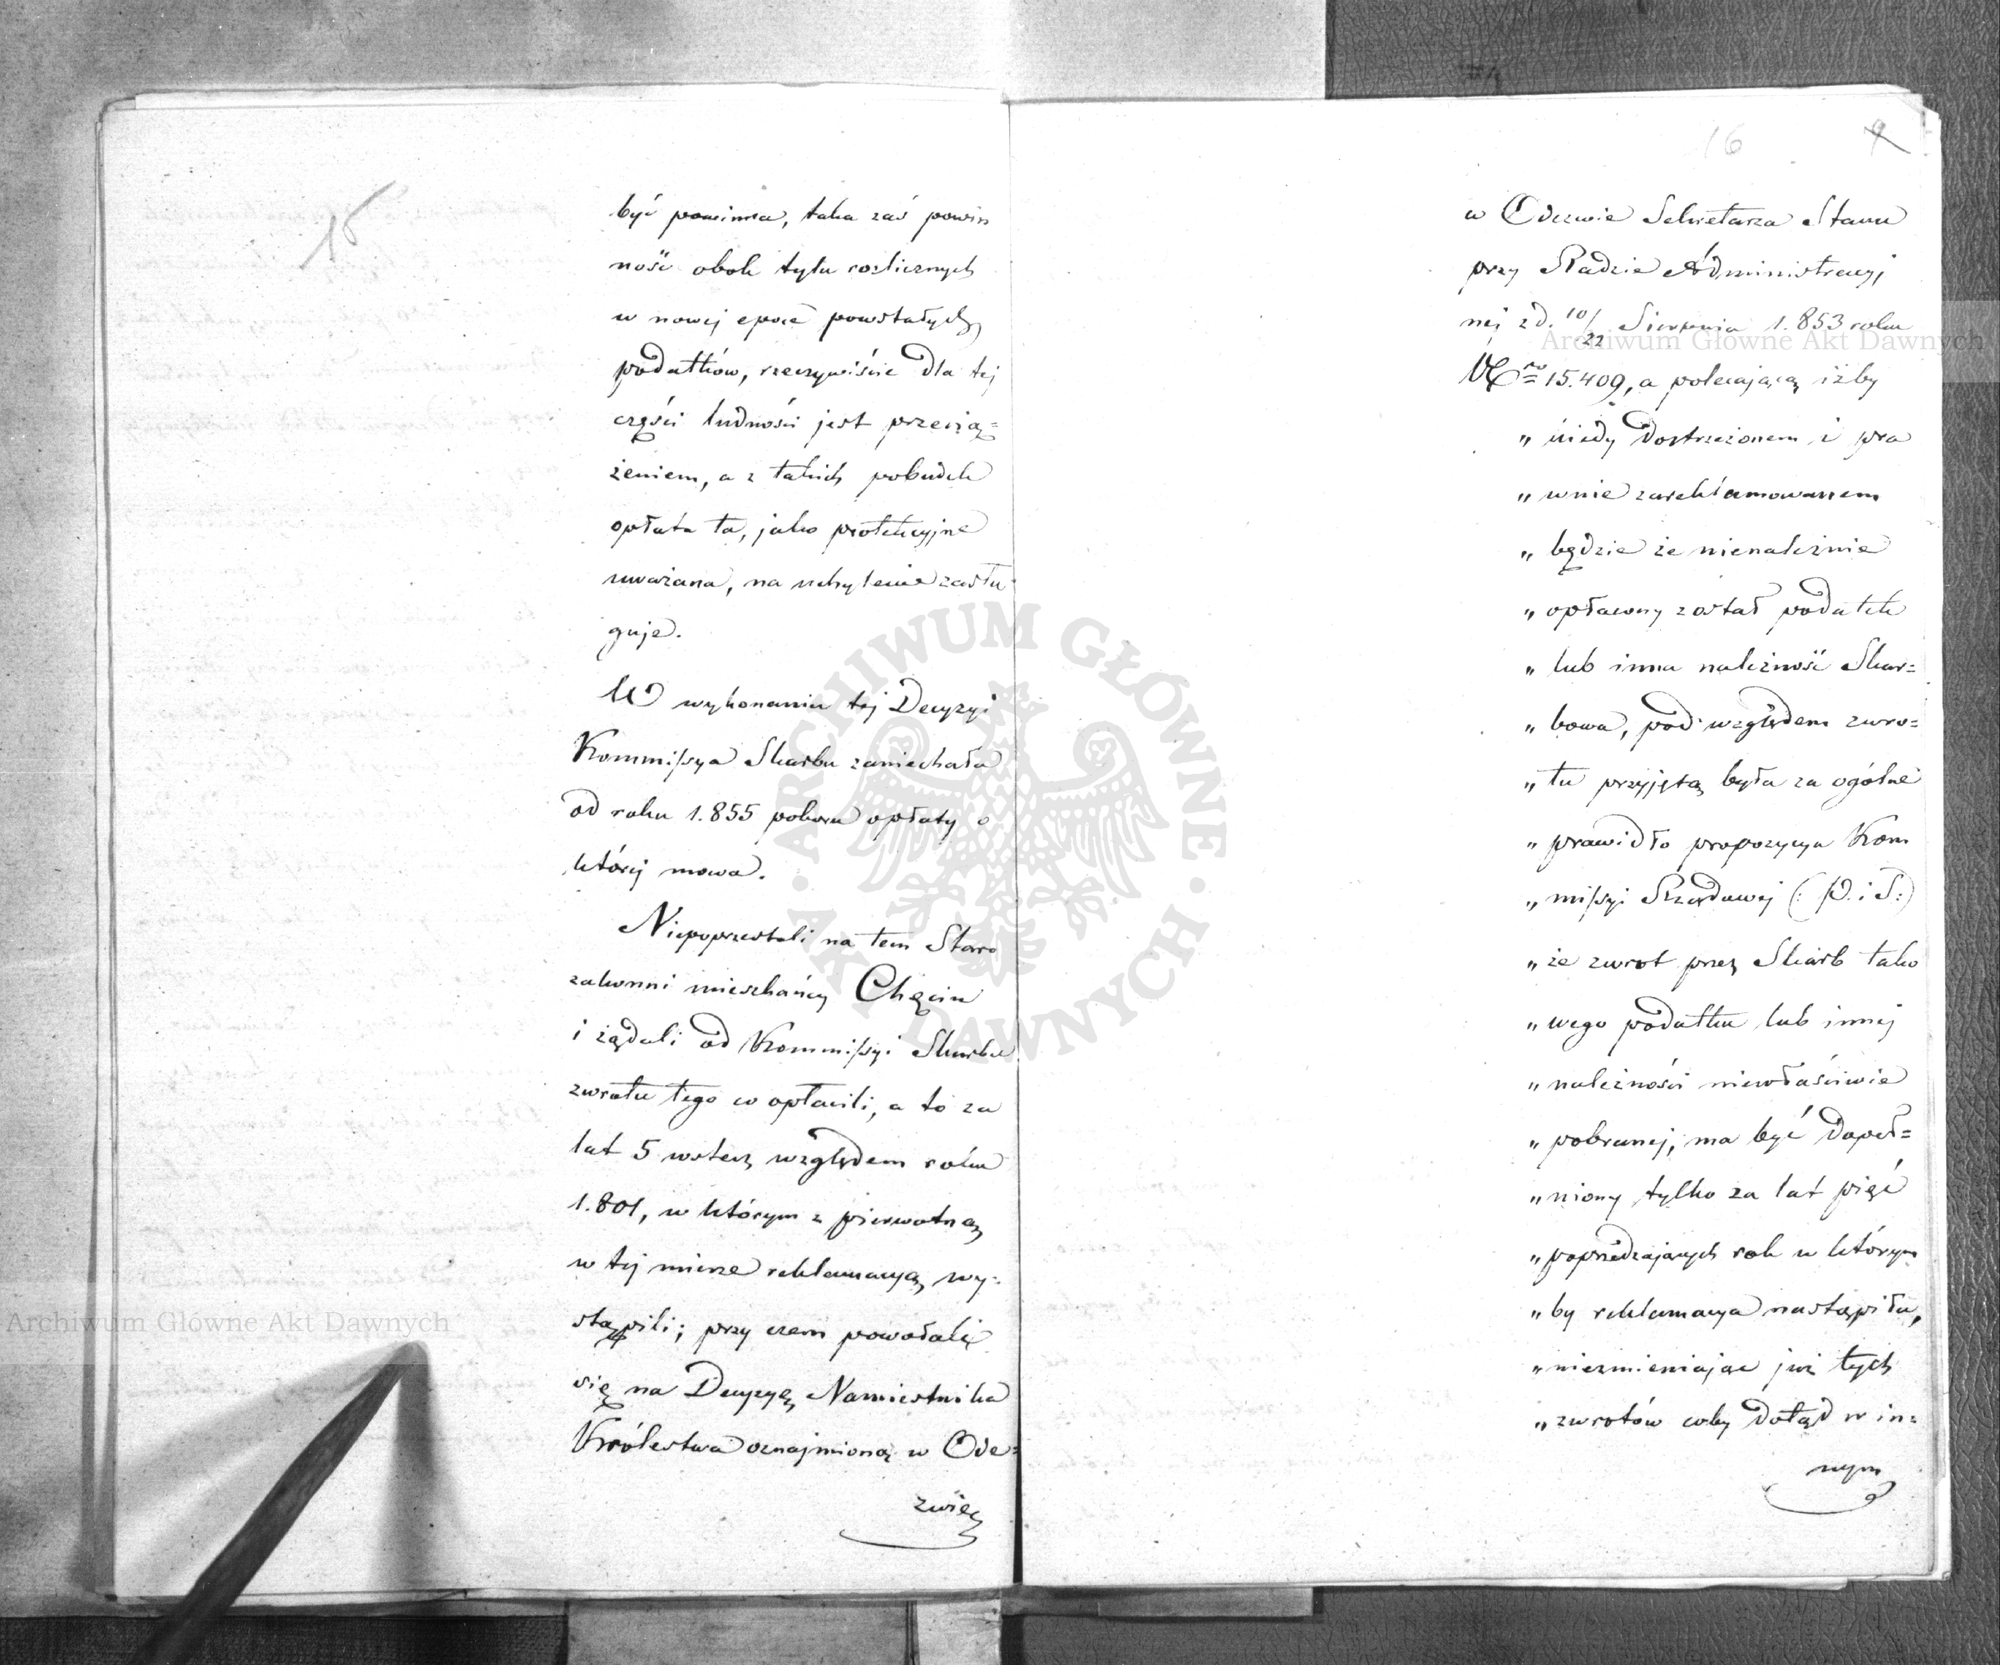 15
być powinna, taka zaś powin
ność obok tylu rozlicznych
w nowej epoce powstałych
podatków, rzeczywiście dla tej
części ludności jest przecią=
żeniem, a z takich pobudek
opłata ta, jako protekcyjne
uważana, na uchylenie zasłu
guje.
W wykonaniu tej Decyzyi
Kommissya Skarbu zaniechała
od roku 1.855 poboru opłaty o
której mowa.
Niepoprzestali na tem Staro
zakonni mieszkańcy Chęcin
i żądali od Kommissyi Skarbu
zwrotu tego co opłacili, a to za
lat 5 wstecz względem roku
1.801, w którym z pierwotną
w tej mierze reklamacyą wy=
stąpili; przy czem powołali
się na Decyzyę Namiestnika
Królestwa oznajmioną w Ode=
zwie
16
9
w Odezwie Sekretarza Stanu
przy Radzie Administracyj
nej z d. 10/22 Sierpnia 1.853 roku
Nro 15.409, a polecającą iżby
„ kiedy dostrzeżonem i pra
„ wnie zareklamowanem
„ będzie że nienależnie
„ opłacony został podatek
„ lub inna należność Skar=
„ bowa, pod względem zwro=
„ tu przyjętą była za ogólne
„ prawidło propozycya Kom
„ missyi Rządowej (: P. i S :)
„ że zwrot przez Skarb tako
„ wego podatku lub innej
„ należności niewłaściwie
„ pobranej, ma być dopeł=
„ niony tylko za lat pięć
„ poprzedzających rok w którym
„ by reklamacya nastąpiła,
„ niezmieniając już tych
„ zwrotów coby dotąd w in=
nym
Archiwum Główne Akt Dawnych
Archiwum Główne Akt Dawnych
ARCHIWUM GŁÓWNE
AKT DAWNYCH